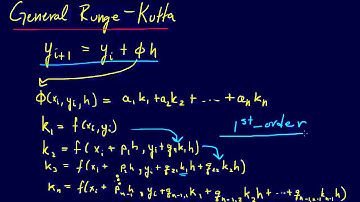 General Runge-Kutta
y_{i+1} = y_i + ϕ h
ϕ(x_i, y_i, h) = a_1 k_1 + a_2 k_2 + ... + a_n k_n
k_1 = f(x_i, y_i)
1st-order
k_2 = f(x_i + p_1 h, y_i + q_{11} k_1 h)
k_3 = f(x_i + p_2 h, y_i + q_{21} k_1 h + q_{22} k_2 h)
k_n = f(x_i + p_{n-1} h, y_i + q_{n-1,1} k_1 h + q_{n-1,2} k_2 h + ... + q_{n-1,n-1} k_{n-1} h)